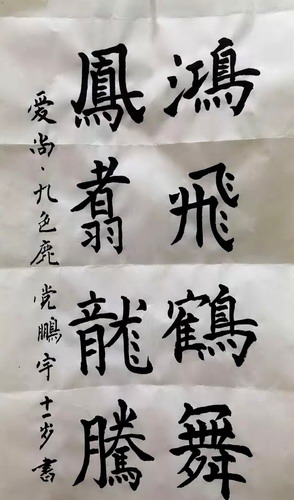 鴻飛鶴舞
鳳翥龍騰
爱尚·九色鹿 党鵬宇 十一岁 書